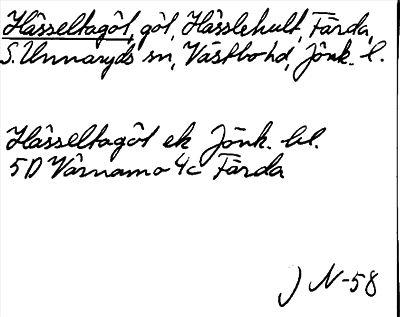 Hässeltagöl, göl, Hässlehult, Färda,
S. Unnaryds sn, Västbo hd, Jönk. l.
Hässeltagöl ek Jönk. bl.
5D Värnamo 4c Färda
J N-58